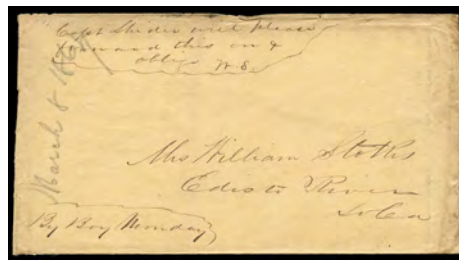 Capt Strider will please
forward this on &
oblige W.S.
March 8
Mrs William Stokes
Edisto River
So Ca
By Boy Monday